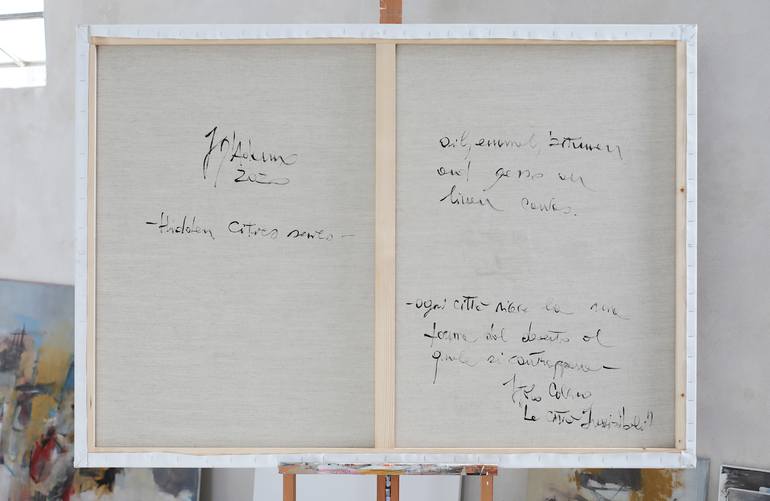 J D'Adamo
2020
-Hidden Cities series-
oil, enamel, bitumen
and gesso on
linen canvas.
-ogni città riceve la sua
forma dal deserto al
quale si contrappone-
Italo Calvino
"Le città Invisibili"